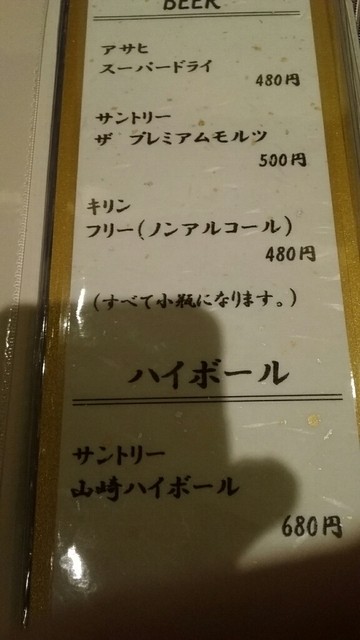 BEER
アサヒ
スーパードライ
480円
サントリー
ザ プレミアムモルツ
500円
キリン
フリー(ノンアルコール)
480円
(すべて小瓶になります。)
ハイボール
サントリー
山崎ハイボール
680円